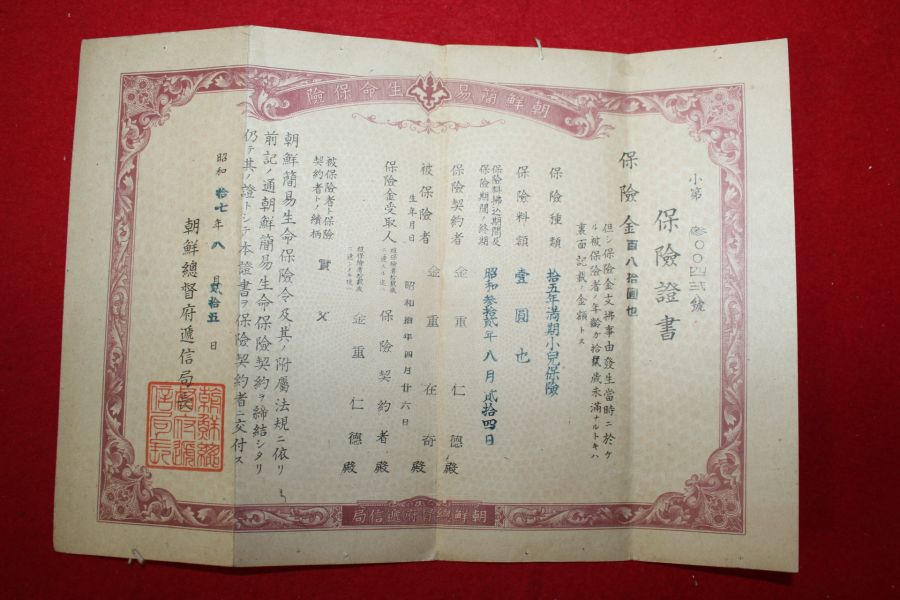 朝鮮簡易生命保險
小第參〇〇四號
保險證書
保險金百八拾圓也
但シ保險金支拂事由發生當時ニ於ケ
ル被保險者ノ年齡ガ拾貳歲未滿ナルトキハ
裏面記載ノ金額トス
保險種類 拾五年滿期小兒保險
保險料額 壹圓也
保險料拂込期間及
保險期間ノ終期 昭和參拾貳年八月貳拾四日
保險契約者 金重仁德殿
被保險者 金重在奇殿
生年月日 昭和拾年四月廿六日
保險金受取人
保險契約者殿
金重仁德殿
被保險者ト保險
契約者トノ續柄 實父
朝鮮簡易生命保險令及其ノ附屬法規ニ依リ
前記ノ通朝鮮簡易生命保險契約ヲ締結シタリ
仍テ其ノ證トシテ本證書ヲ保險契約者ニ交付ス
昭和拾七年八月貳拾五日
朝鮮總督府遞信局長
朝鮮總督府遞信局